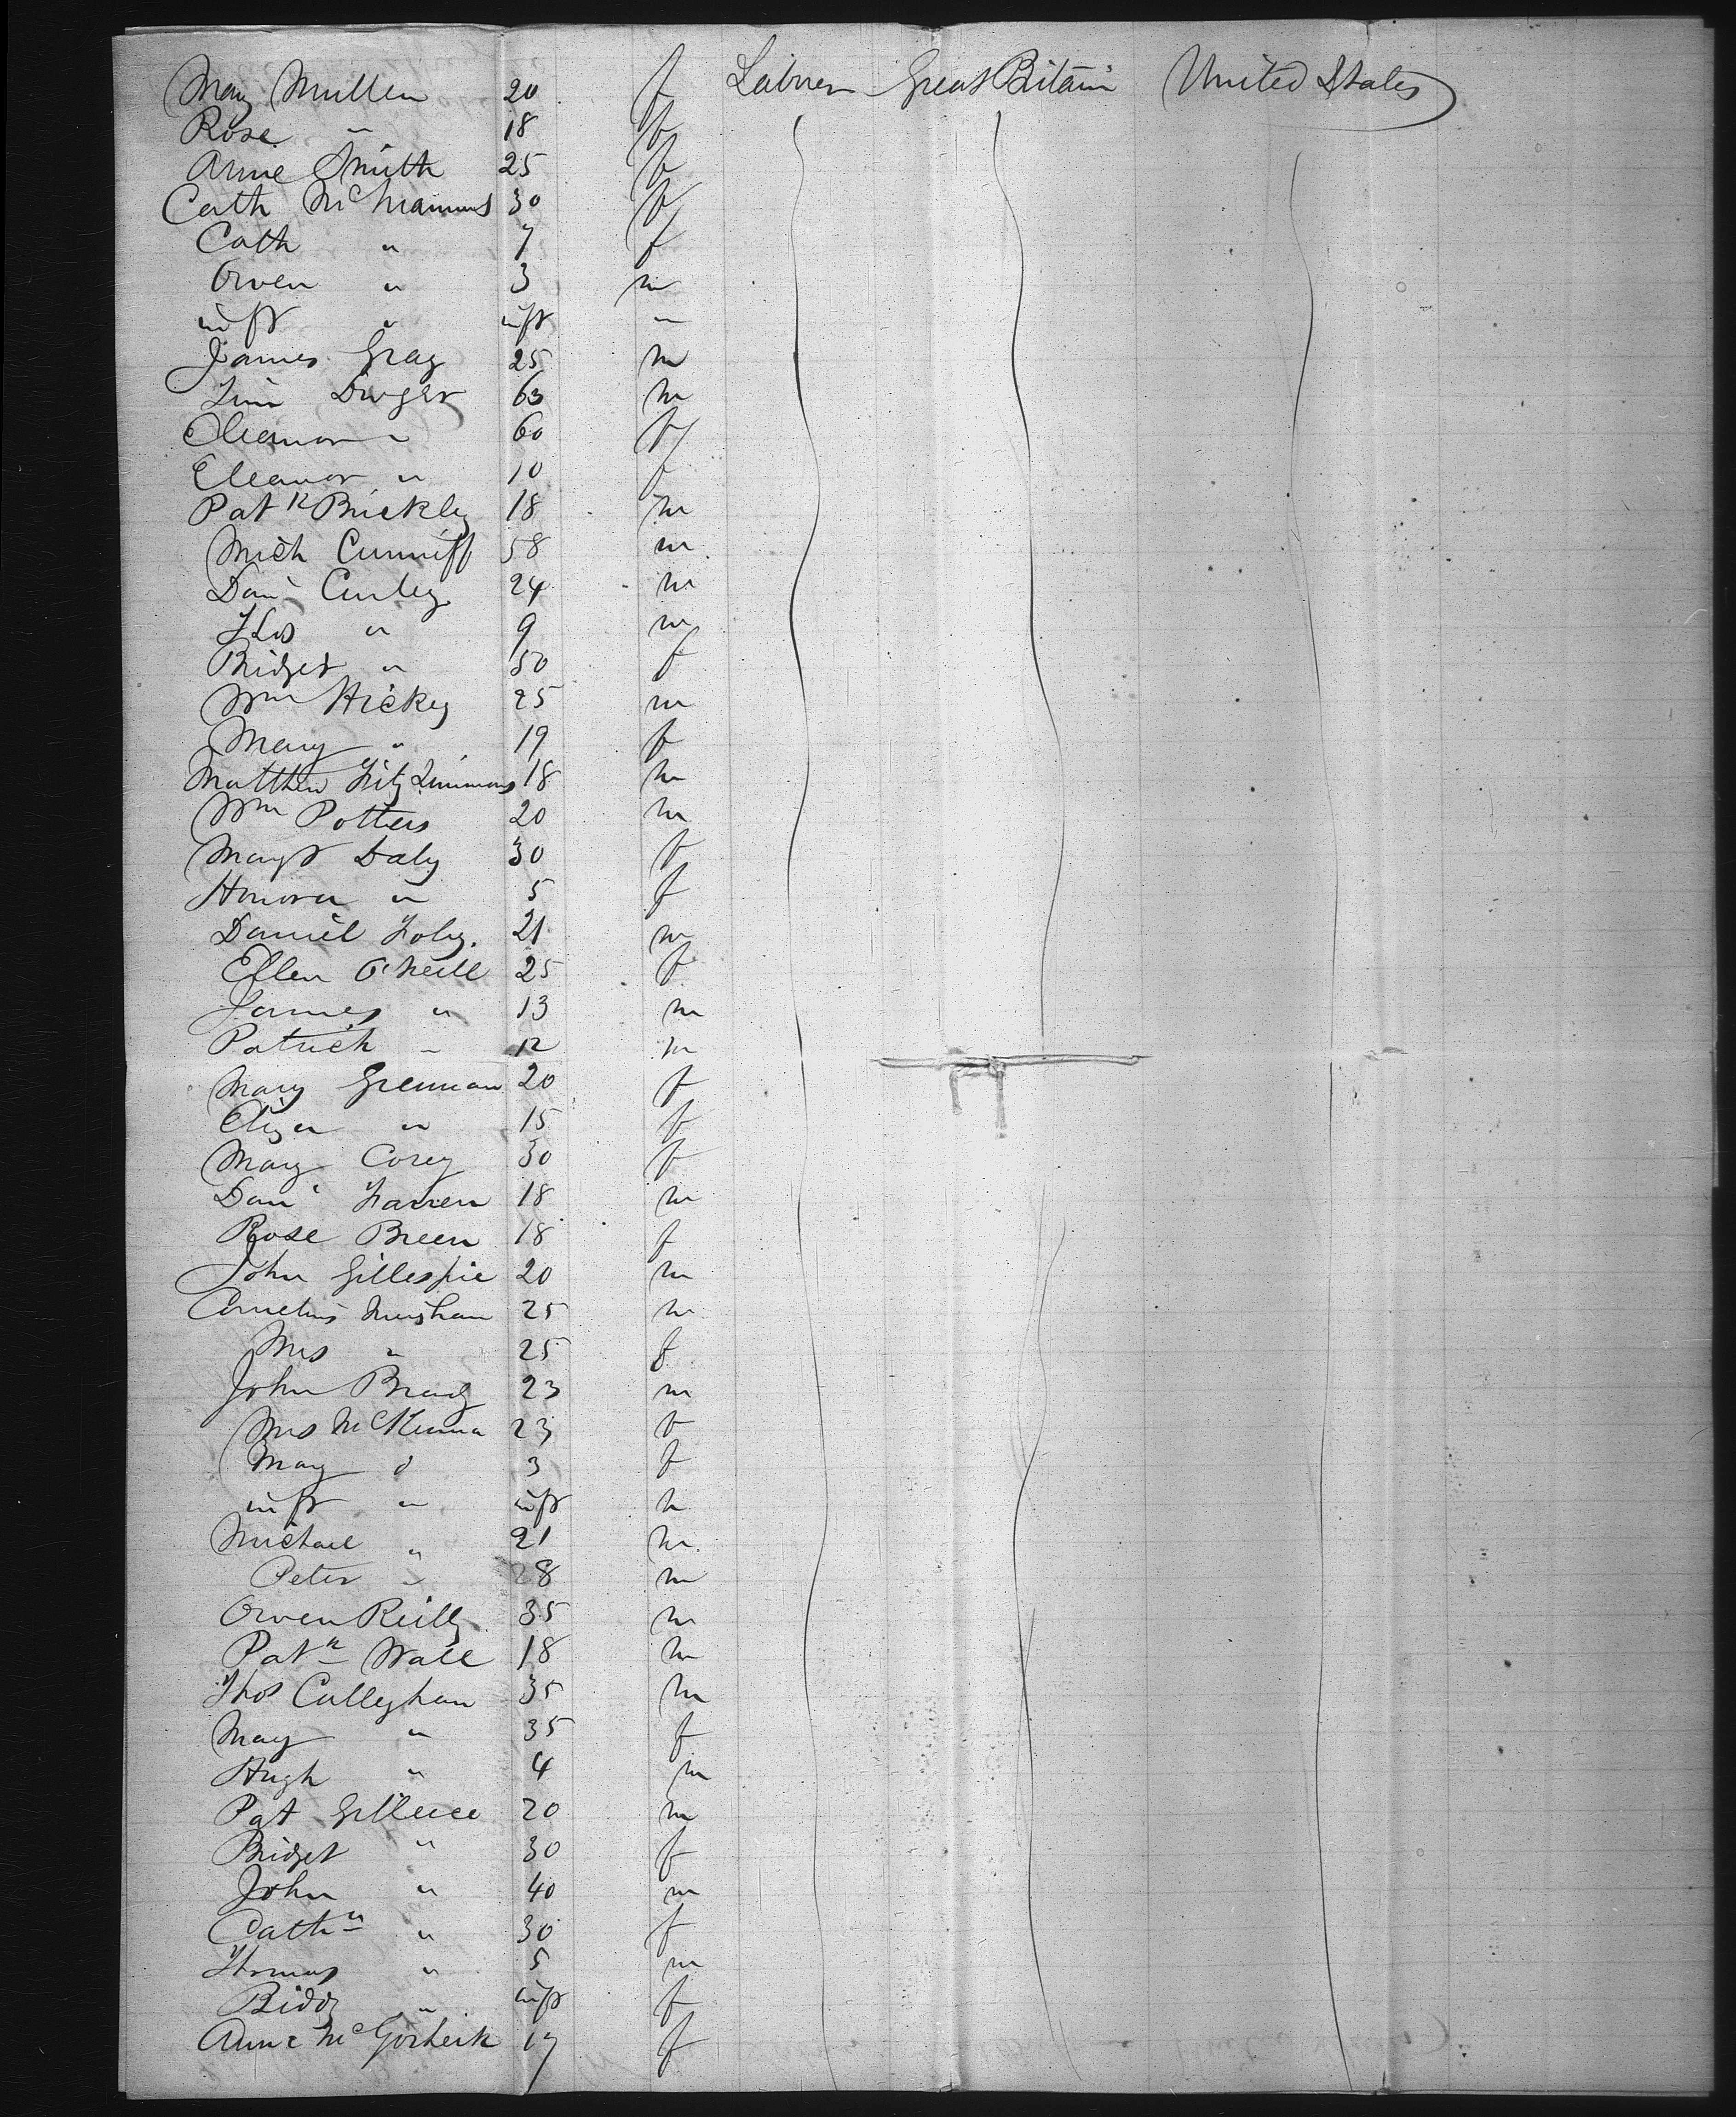 Mary Mullen 20 f Laborer Great Britain United States
Rose " 18 f
Anne Smith 25 f
Cath McManus 30 f
Cath " 7 f
Owen " 3 m
inft " inft "
James Gray 25 m
Tim Dwyer 63 m
Eleanor " 60 f
Eleanor " 10 f
Patk Brickley 18 m
Mich Cunniff 58 m
Danl Curley 24 m
Thos " 9 m
Bridget " 50 f
Wm Hickey 25 m
Mary " 19 f
Matthew Fitz Simmons 18 m
Wm Potters 20 m
Margt Daly 30 f
Honora " 5 f
Daniel Foley. 21 m
Ellen O'Neill 25 f
James " 13 m
Patrick " 12 m
Mary Grennan 20 f
Eliza " 15 f
Mary Corey 30 f
Danl Farren 18 m
Rose Breen 18 f
John Gillespie 20 m
Cornelius 25 m
Mrs " 25 f
John Brady 23 m
Mrs McKenna 23 f
Mary " 3 f
inft " inft m
Michael " 21 m
Peter " 28 m
Owen Reilly 35 m
Patk Wall 18 m
Thos Calleghan 35 m
Mary " 35 f
Hugh " 4 m
Pat Gilleece 20 m
Bridget " 30 f
John " 40 m
Cathn " 30 f
Thomas " 5 m
Biddy " inft f
Anne 17 f